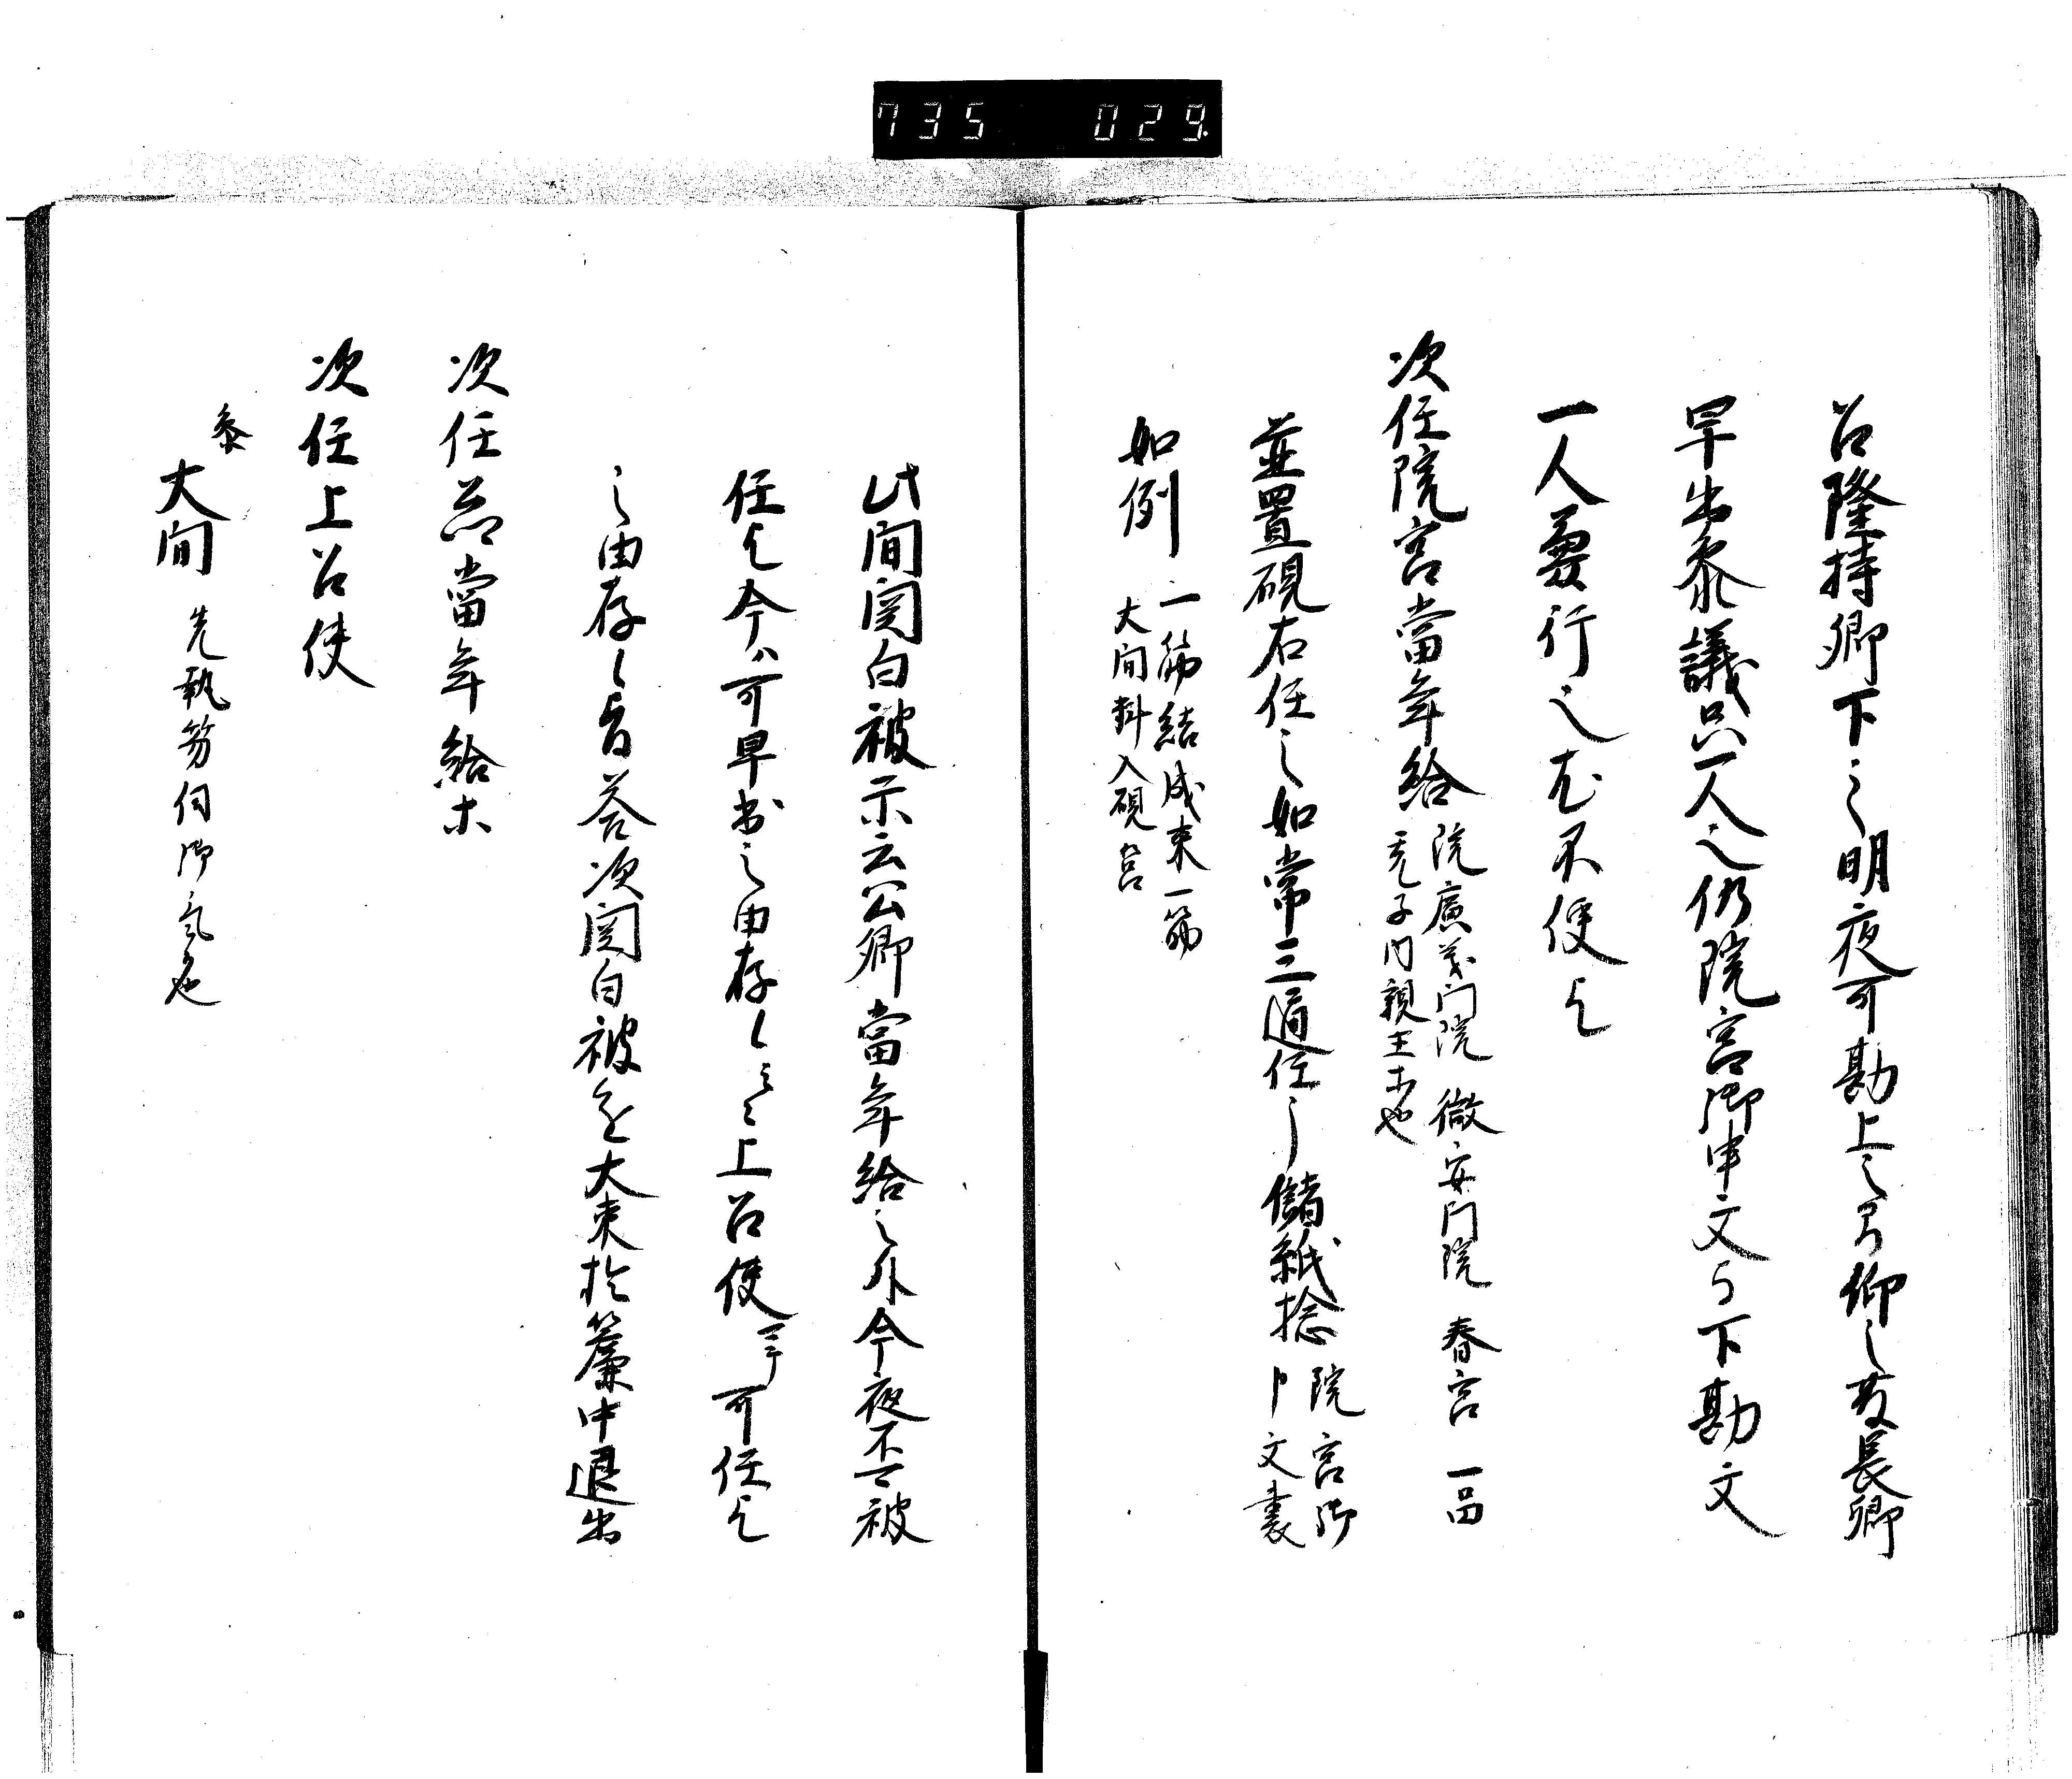 735 029.
召隆持卿下之明夜可勘上之由仰之長卿
早出参議只一人之仍院宮御申文可下勘文
一人兼行之尤不便也
次任院宮當年給
院廣義門院 徽安門院 春宮 一品
子内親王ホ也
並置硯右任之如常三通任了儲紙捻
院宮御
申文書
如例
一筋結成束一筋
大間料入硯筥
此間関白被示云公卿當年給之外今夜不可被
任也今ハ可早出之由存之云々上召使可任也
之由存之旨答次関白被起大束於簾中退出
次任當年給ホ
次任上召使
大間
先執筆伺御氣色